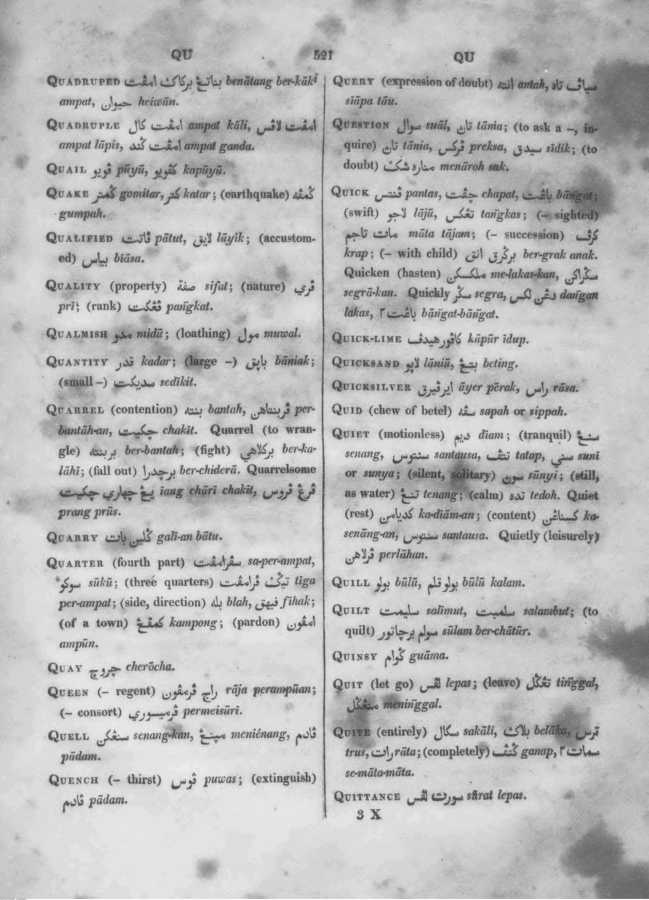 QU 521 QU
QUADRUPED بناتڠ برکاک امڤت benātang ber-kāki
ampat, حيوان heiwān.
QUADRUPLE امڤت کال ampat kāli, امڤت لاڤس
ampat lāpis, امڤت ݢند ampat ganda.
QUAIL ڤويو pūyū, کڤويو kapūyū.
QUAKE ݢمتر gomitar, کتر katar; (earthquake) ݢمڤه
gumpah.
QUALIFIED ڤاتت pātut, لايق lāyik; (accustom-
ed) بياس biāsa.
QUALITY (property) صفة sifat; (nature) ڤري
pri; (rank) ڤڠکت pangkat.
QUALMISH مدو midū; (loathing) مول muwal.
QUANTITY قدر kadar; (large –) بايق bāniak;
(small –) سديکت sedīkit.
QUARREL (contention) بنته bantah, ڤربنتاهن per-
bantāh-an, چکيت chakit. Quarrel (to wran-
gle) بربنته ber-bantah; (fight) برکلاهي ber-ka-
lāhī; (fall out) برچدرا ber-chiderā. Quarrelsome
يڠ چهاري چکيت iang chāri chakit, ڤرڠ ڤروس
prang prūs.
QUARRY ݢالين بات galī-an bātu.
QUARTER (fourth part) سڤرامڤت sa-per-ampat,
سوکو sūkū; (three quarters) تيݢ ڤرامڤت tiga
per-ampat; (side, direction) بله blah, فيهق fihak;
(of a town) کمڤڠ kampong; (pardon) امڤون
ampūn.
QUAY چروچه cherōcha.
QUEEN (– regent) راج ڤرمڤون rāja perampūan;
(– consort) ڤرميسوري permeisūri.
QUELL سنڠکن senang-kan, مينڠ meniēnang, ڤادم
pādam.
QUENCH (– thirst) ڤوس puwas; (extinguish)
ڤادم pādam.
QUERY (expression of doubt) انته antah, سياڤ تاو
siāpa tāu.
QUESTION سوال suāl, تان tānia; (to ask a –, in-
quire) تان tānia, ڤرکس preksa, سيدق sīdik; (to
doubt) مناره شک menāroh sak.
QUICK ڤنتس pantas, چڤت chapat, باڠت bāngat;
(swift) لاجو lājū, تڠکس tangkas; (– sighted)
مات تاجم māta tājam; (– succession) کرڤ
krap; (– with child) برݢرق انق ber-grak anak.
Quicken (hasten) ملکسکن me-lakas-kan, سݢراکن
segrā-kan. Quickly سݢر segra, دڠن لکس dangan
lakas, باڠت٢ bāngat-bāngat.
QUICK-LIME کاڤور هيدڤ kāpūr idup.
QUICKSAND لاڽو lāniū, بتڠ beting.
QUICKSILVER اير ڤيرق āyer pērak, راس rāsa.
QUID (chew of betel) سڤه sapah or sippah.
QUIET (motionless) ديم diam; (tranquil) سنڠ
senang, سنتوس santausa, تتڤ tatap, سني suni
or sunya; (silent, solitary) سون sūnyi; (still,
as water) تنڠ tenang; (calm) تده tedoh. Quiet
(rest) کديامن ka-dīām-an; (content) کسناڠن ka-
senāng-an, سنتوس santausa. Quietly (leisurely)
ڤرلاهن perlāhan.
QUILL بولو būlū, بولو قلم būlū kalam.
QUILT سليمت salīmut, سلمبت salambut; (to
quilt) سولم برچاتور sūlam ber-chātūr.
QUINSY ݢوام guāma.
QUIT (let go) لڤس lepas; (leave) تڠݢل tinggal,
منڠݢل meninggal.
QUITE (entirely) سکال sakāli, بلاک belāka, ترس
trus, رات rāta; (completely) ݢنڤ ganap, سمات٢
se-māta-māta.
QUITTANCE سورت لڤس sūrat lepas.
3 X